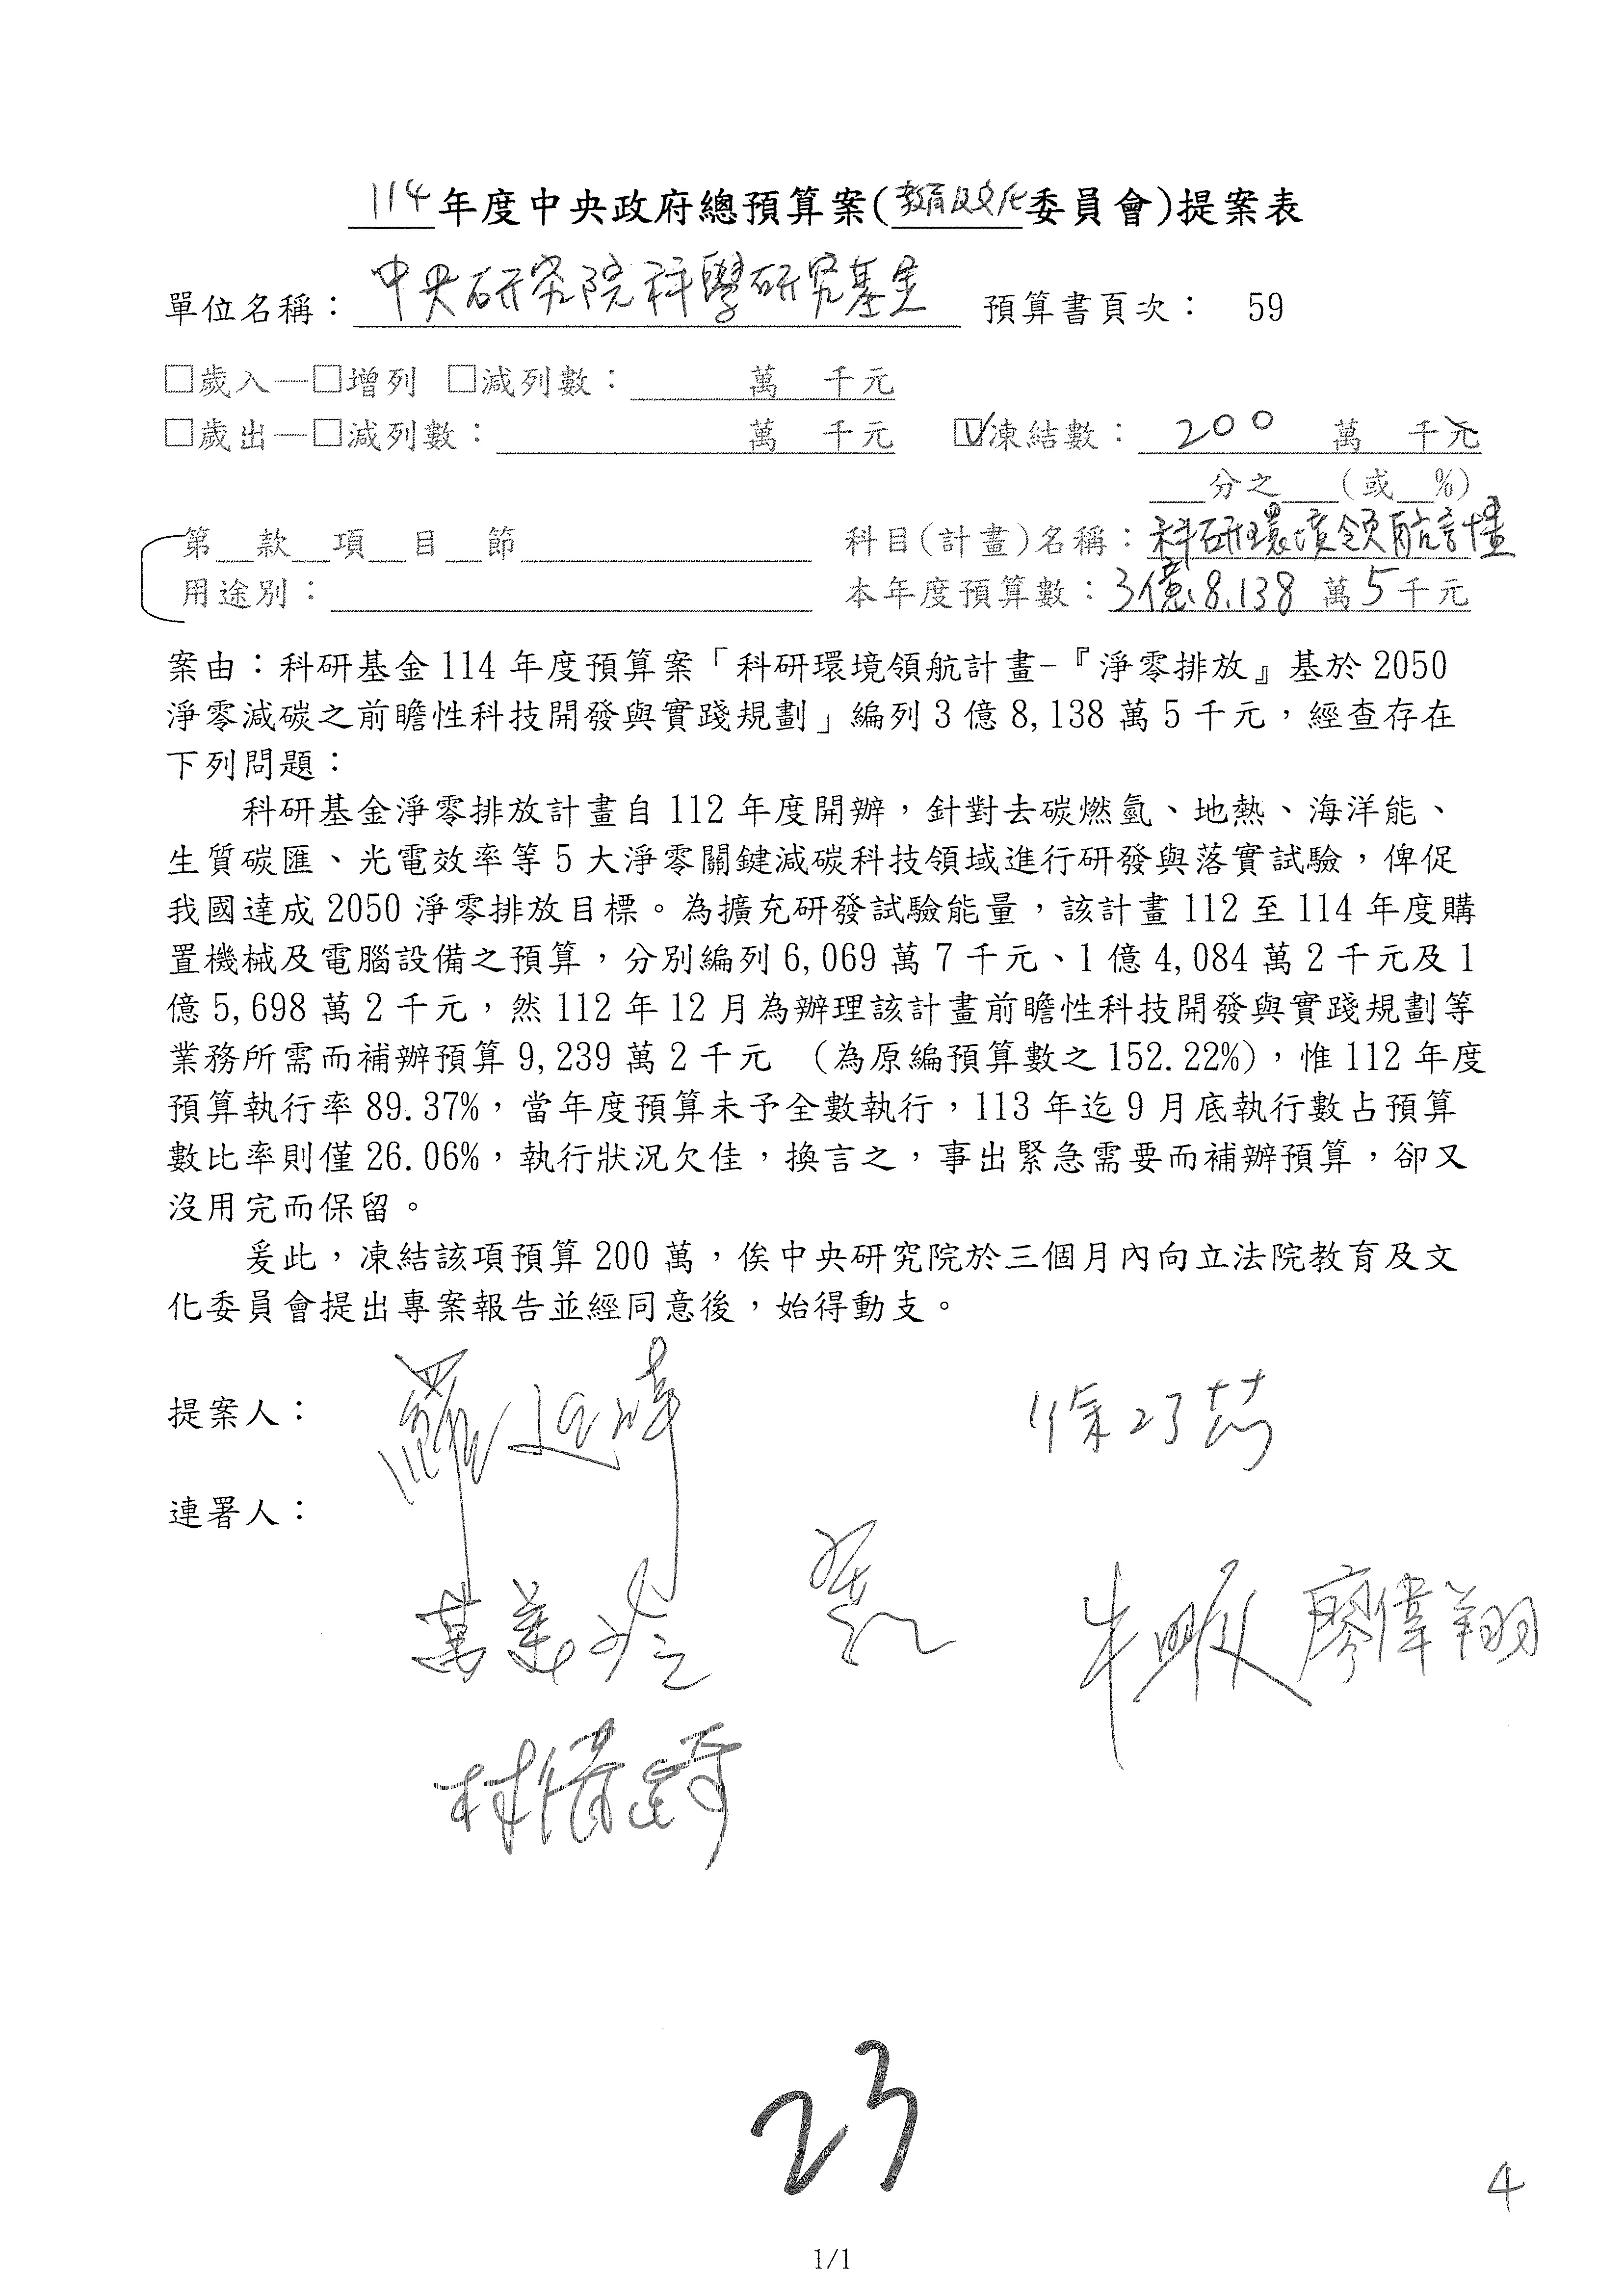 114年度中央政府總預算案(教育及文化委員會)提案表
單位名稱：中央研究院科學研究基金 預算書頁次： 59
□歲入—□增列 □減列數： 萬 千元
□歲出—□減列數： 萬 千元 ☑凍結數： 200 萬 千元
__分之__(或__%)
第__款__項__目__節 科目(計畫)名稱：科研環境領航計畫
用途別： 本年度預算數：3億8,138萬5千元
案由：科研基金114年度預算案「科研環境領航計畫-『淨零排放』基於2050
淨零減碳之前瞻性科技開發與實踐規劃」編列3億8,138萬5千元，經查存在
下列問題：
科研基金淨零排放計畫自112年度開辦，針對去碳燃氫、地熱、海洋能、
生質碳匯、光電效率等5大淨零關鍵減碳科技領域進行研發與落實試驗，俾促
我國達成2050淨零排放目標。為擴充研發試驗能量，該計畫112至114年度購
置機械及電腦設備之預算，分別編列6,069萬7千元、1億4,084萬2千元及1
億5,698萬2千元，然112年12月為辦理該計畫前瞻性科技開發與實踐規劃等
業務所需而補辦預算9,239萬2千元 （為原編預算數之152.22%)，惟112年度
預算執行率89.37%，當年度預算未予全數執行，113年迄9月底執行數占預算
數比率則僅26.06%，執行狀況欠佳，換言之，事出緊急需要而補辦預算，卻又
沒用完而保留。
爰此，凍結該項預算200萬，俟中央研究院於三個月內向立法院教育及文
化委員會提出專案報告並經同意後，始得動支。
提案人： 羅廷瑋 徐巧芯
連署人：
萬美玲 廖偉翔
林倩綺
23
4
1/1